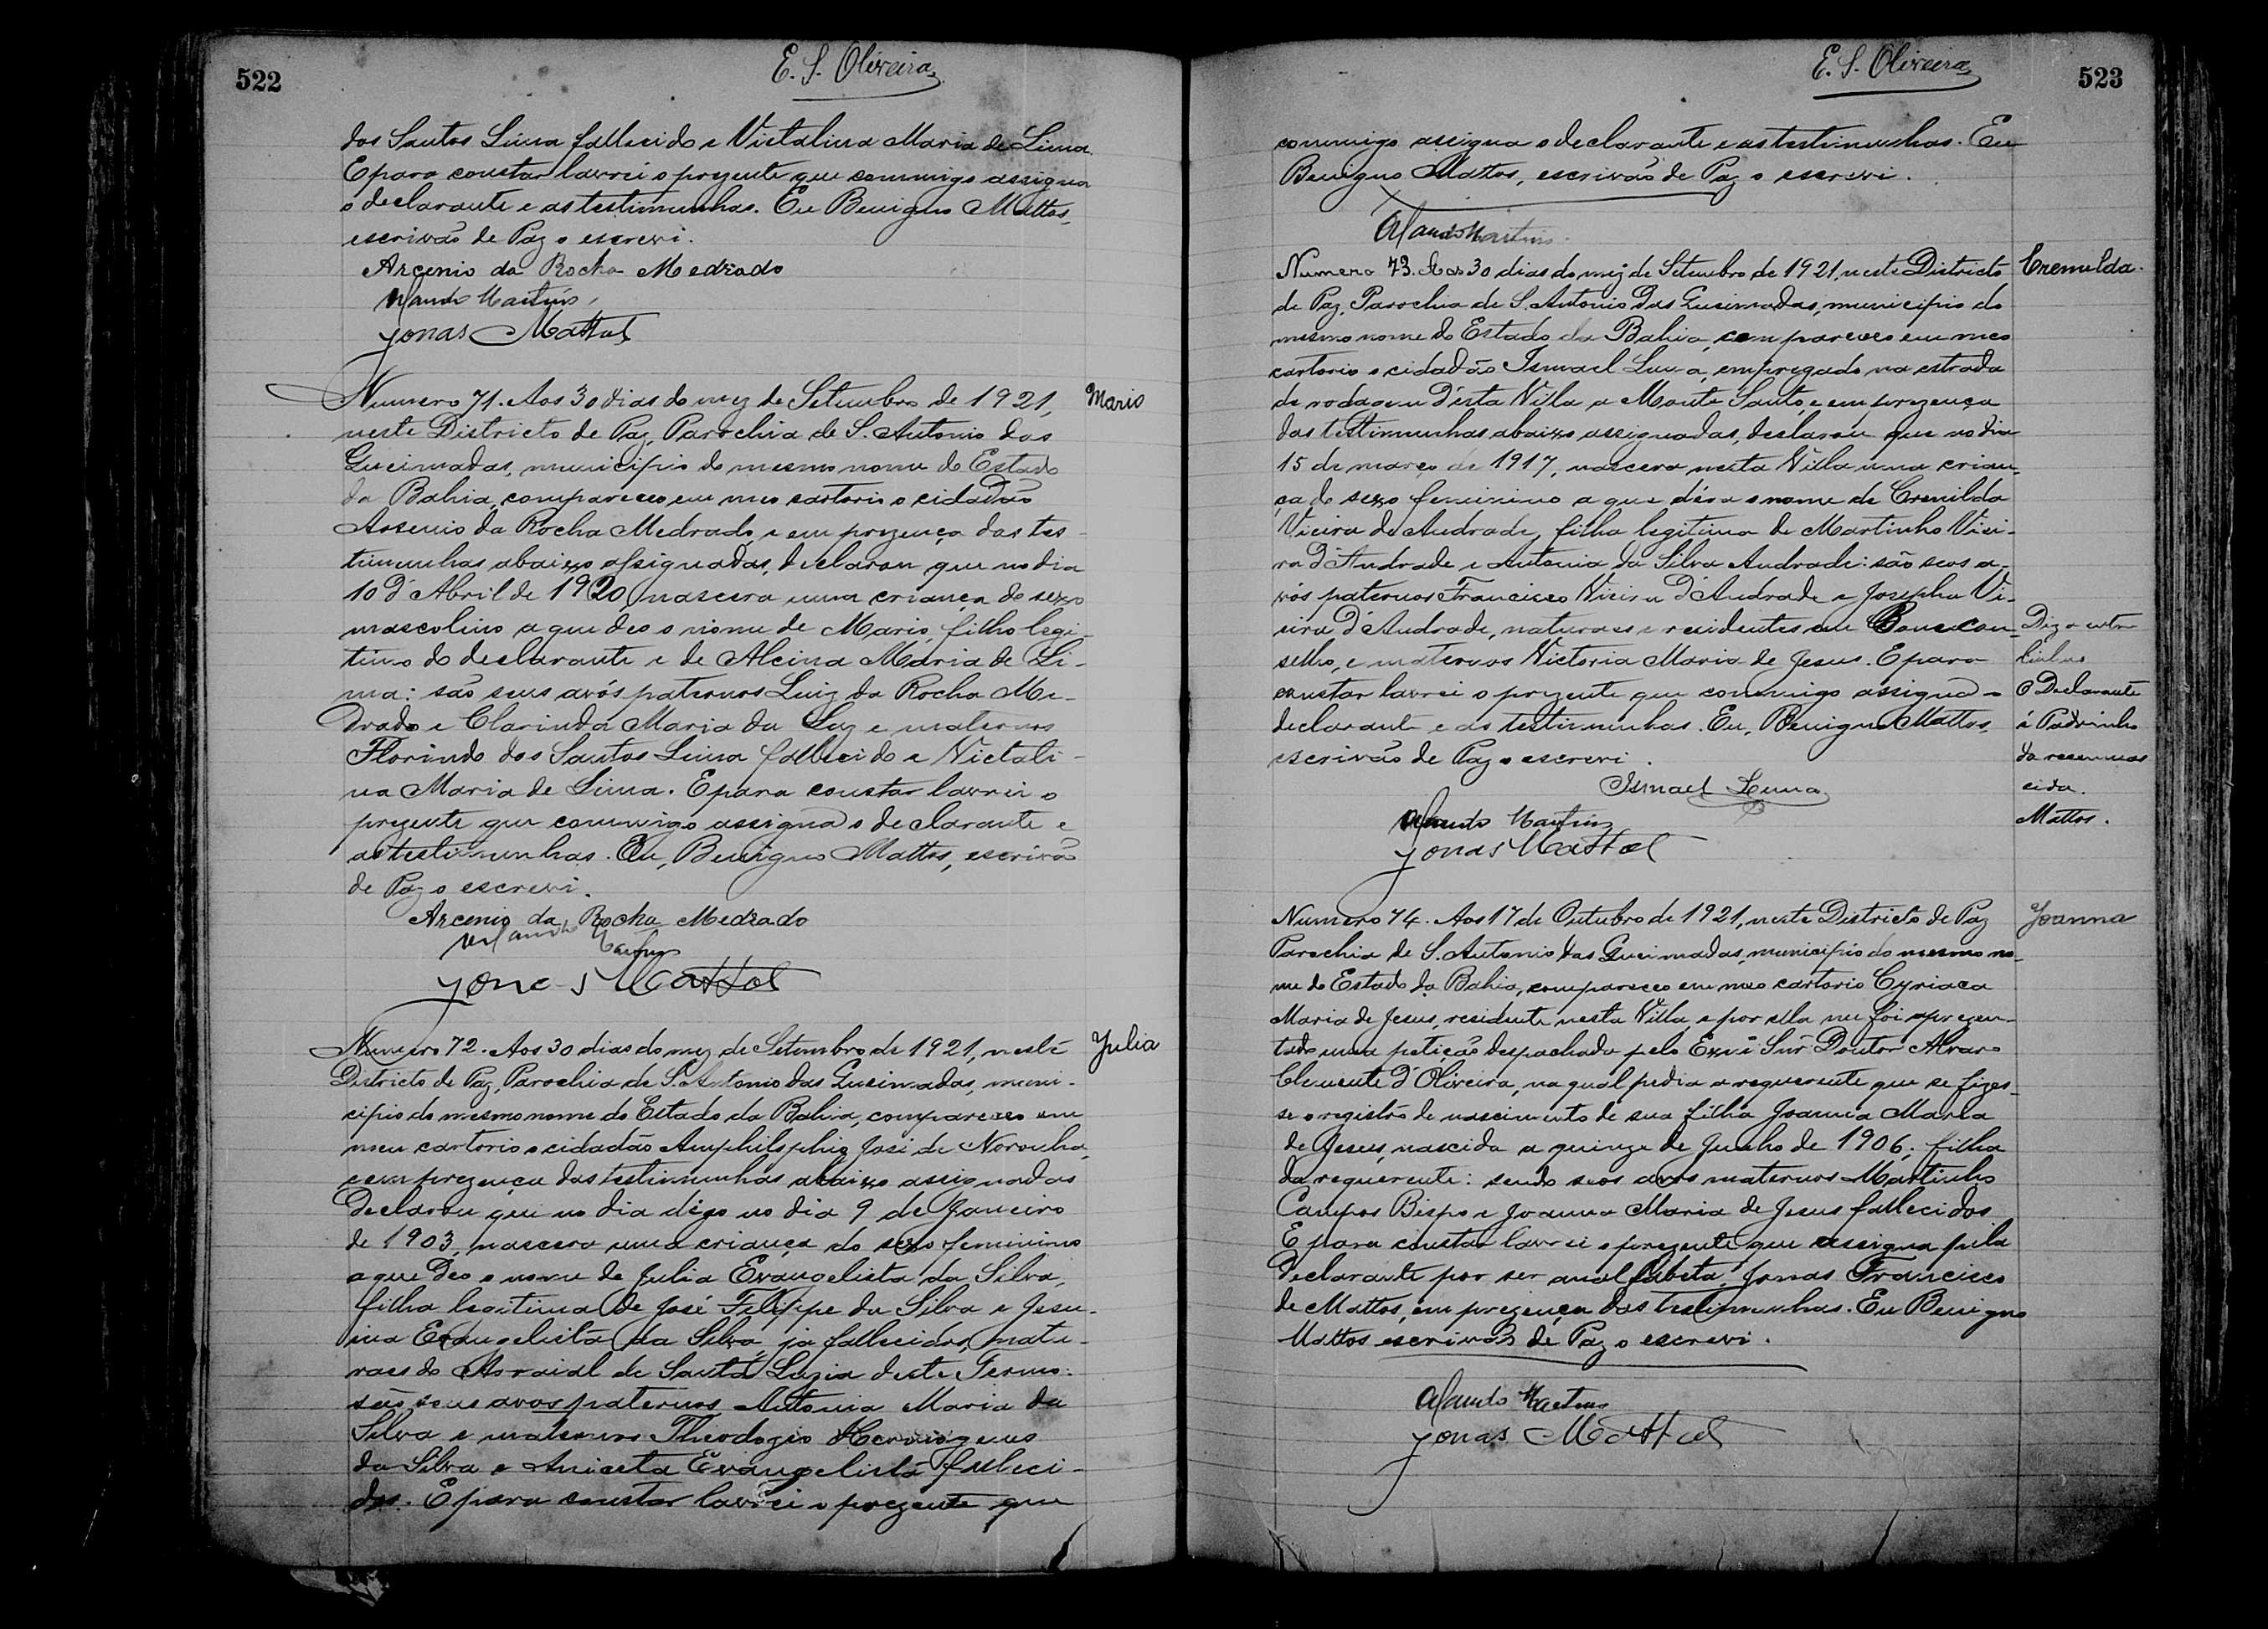 522
E. S. Oliveira
dos Santos Lima fallecido e Victalina Maria de Lima.
E para constar lavrei o prezente que commigo assigna
o declarante e as testimunhas. Eu Benigno Mattos,
escrivão de Paz o escrevi.
Arcenio da Rocha Medrado
Martins
Jonas Mattos
Numero 71. Aos 30 dias do mez de Setembro de 1921,
Mario
neste Districto de Paz, Parochia de S. Antonio das
Queimadas, municipio do mesmo nome do Estado
da Bahia, compareceo em meo cartorio o cidadão
Arsenio da Rocha Medrado, e em prezença das tes-
timunhas abaixo assignadas, declarou que no dia
10 d'Abril de 1920 nascera uma criança do sexo
masculino a que deo o nome de Mario, filho legi-
timo do declarante e de Alcina Maria de Li-
ma: são seus avós paternos Luiz da Rocha Me-
drado e Clarinda Maria da Luz e maternos
Florindo dos Santos Lima fallecido e Victali-
na Maria de Lima. E para constar lavrei o
prezente que commigo assigna o declarante e
as testimunhas. Eu, Benigno Mattos, escrivão
de Paz o escrevi.
Arcenio da Rocha Medrado
Martins
Jonas Mattos
Numero 72. Aos 30 dias do mez de Setembro de 1921, neste
Julia
Districto de Paz, Parochia de S. Antonio das Queimadas, muni-
cipio do mesmo nome do Estado da Bahia, compareceo em
meu cartorio o cidadão Amphilophio José de Noronha,
e em prezença das testimunhas abaixo assignadas
declarou que no dia digo no dia 9 de Janeiro
de 1903, nascera uma criança do sexo feminino
a que deo o nome de Julia Evangelista da Silva,
filha legitima de José Felippe da Silva e Jesu-
ina Evangelista da Silva, ja fallecidos, natu-
raes do Arraial de Santa Luzia deste Termo:
são seus avos paternos Antonia Maria da
Silva e maternos Theodozio Hermogenes
da Silva e Aniceta Evangelista falleci-
dos. E para constar lavrei o prezente que
E. S. Oliveira
523
commigo assigna o declarante e as testimunhas. Eu
Benigno Mattos, escrivão de Paz o escrevi.
Martins
Numero 73. Aos 30 dias do mez de Setembro de 1921, neste Districto
Cremilda.
de Paz, Parochia de S. Antonio das Queimadas, municipio do
mesmo nome do Estado da Bahia, compareceo em meo
cartorio o cidadão Ismael Luna, empregado na estrada
de rodagem d'esta Villa a Monte Santo, e em prezença
das testimunhas abaixo assignadas, declarou que no dia
15 de março de 1917, nascera nesta Villa uma crian-
ça do sexo feminino a que déra o nome de Cremilda
Vieira de Andrade, filha legitima de Martinho Viei-
ra d'Andrade e Antonia da Silva Andrade: são seos a-
vós paternos Francisco Vieira d'Andrade e Josepha Vi-
eira d'Andrade, naturaes e residentes em Bom con-
selho, e maternos Victoria Maria de Jesus. E para
constar lavrei o prezente que commigo assigna o
declarante e as testimunhas. Eu, Benigno Mattos,
escrivão de Paz o escrevi.
Digo entre
linhas
O Declarante
é Padrinho
da recemnas
cida.
Mattos.
Ismael Luna
Martins
Jonas Mattos
Numero 74. Aos 17 de Outubro de 1921, neste Districto de Paz
Joanna
Parochia de S. Antonio das Queimadas, municipio do mesmo no-
me do Estado da Bahia, compareceo em meo cartorio Cyriaca
Maria de Jesus, residente nesta Villa, e por ella me foi aprezen-
tado uma petição despachada pelo Exmº Snr. Doutor Alvaro
Clemente d'Oliveira, na qual pedia a requerente que se fizes-
se o registro de nascimento de sua filha Joanna Maria
de Jesus, nascida a quinze de Junho de 1906, filha
da requerente: sendo seos avos maternos Martinho
Campos Bispo e Joanna Maria de Jesus fallecidos
E para constar lavrei o prezente que assigna pela
declarante por ser analfabeta, Jonas Francisco
de Mattos, em prezença das testimunhas. Eu Benigno
Mattos escrivão de Paz o escrevi.
Martins
Jonas Mattos